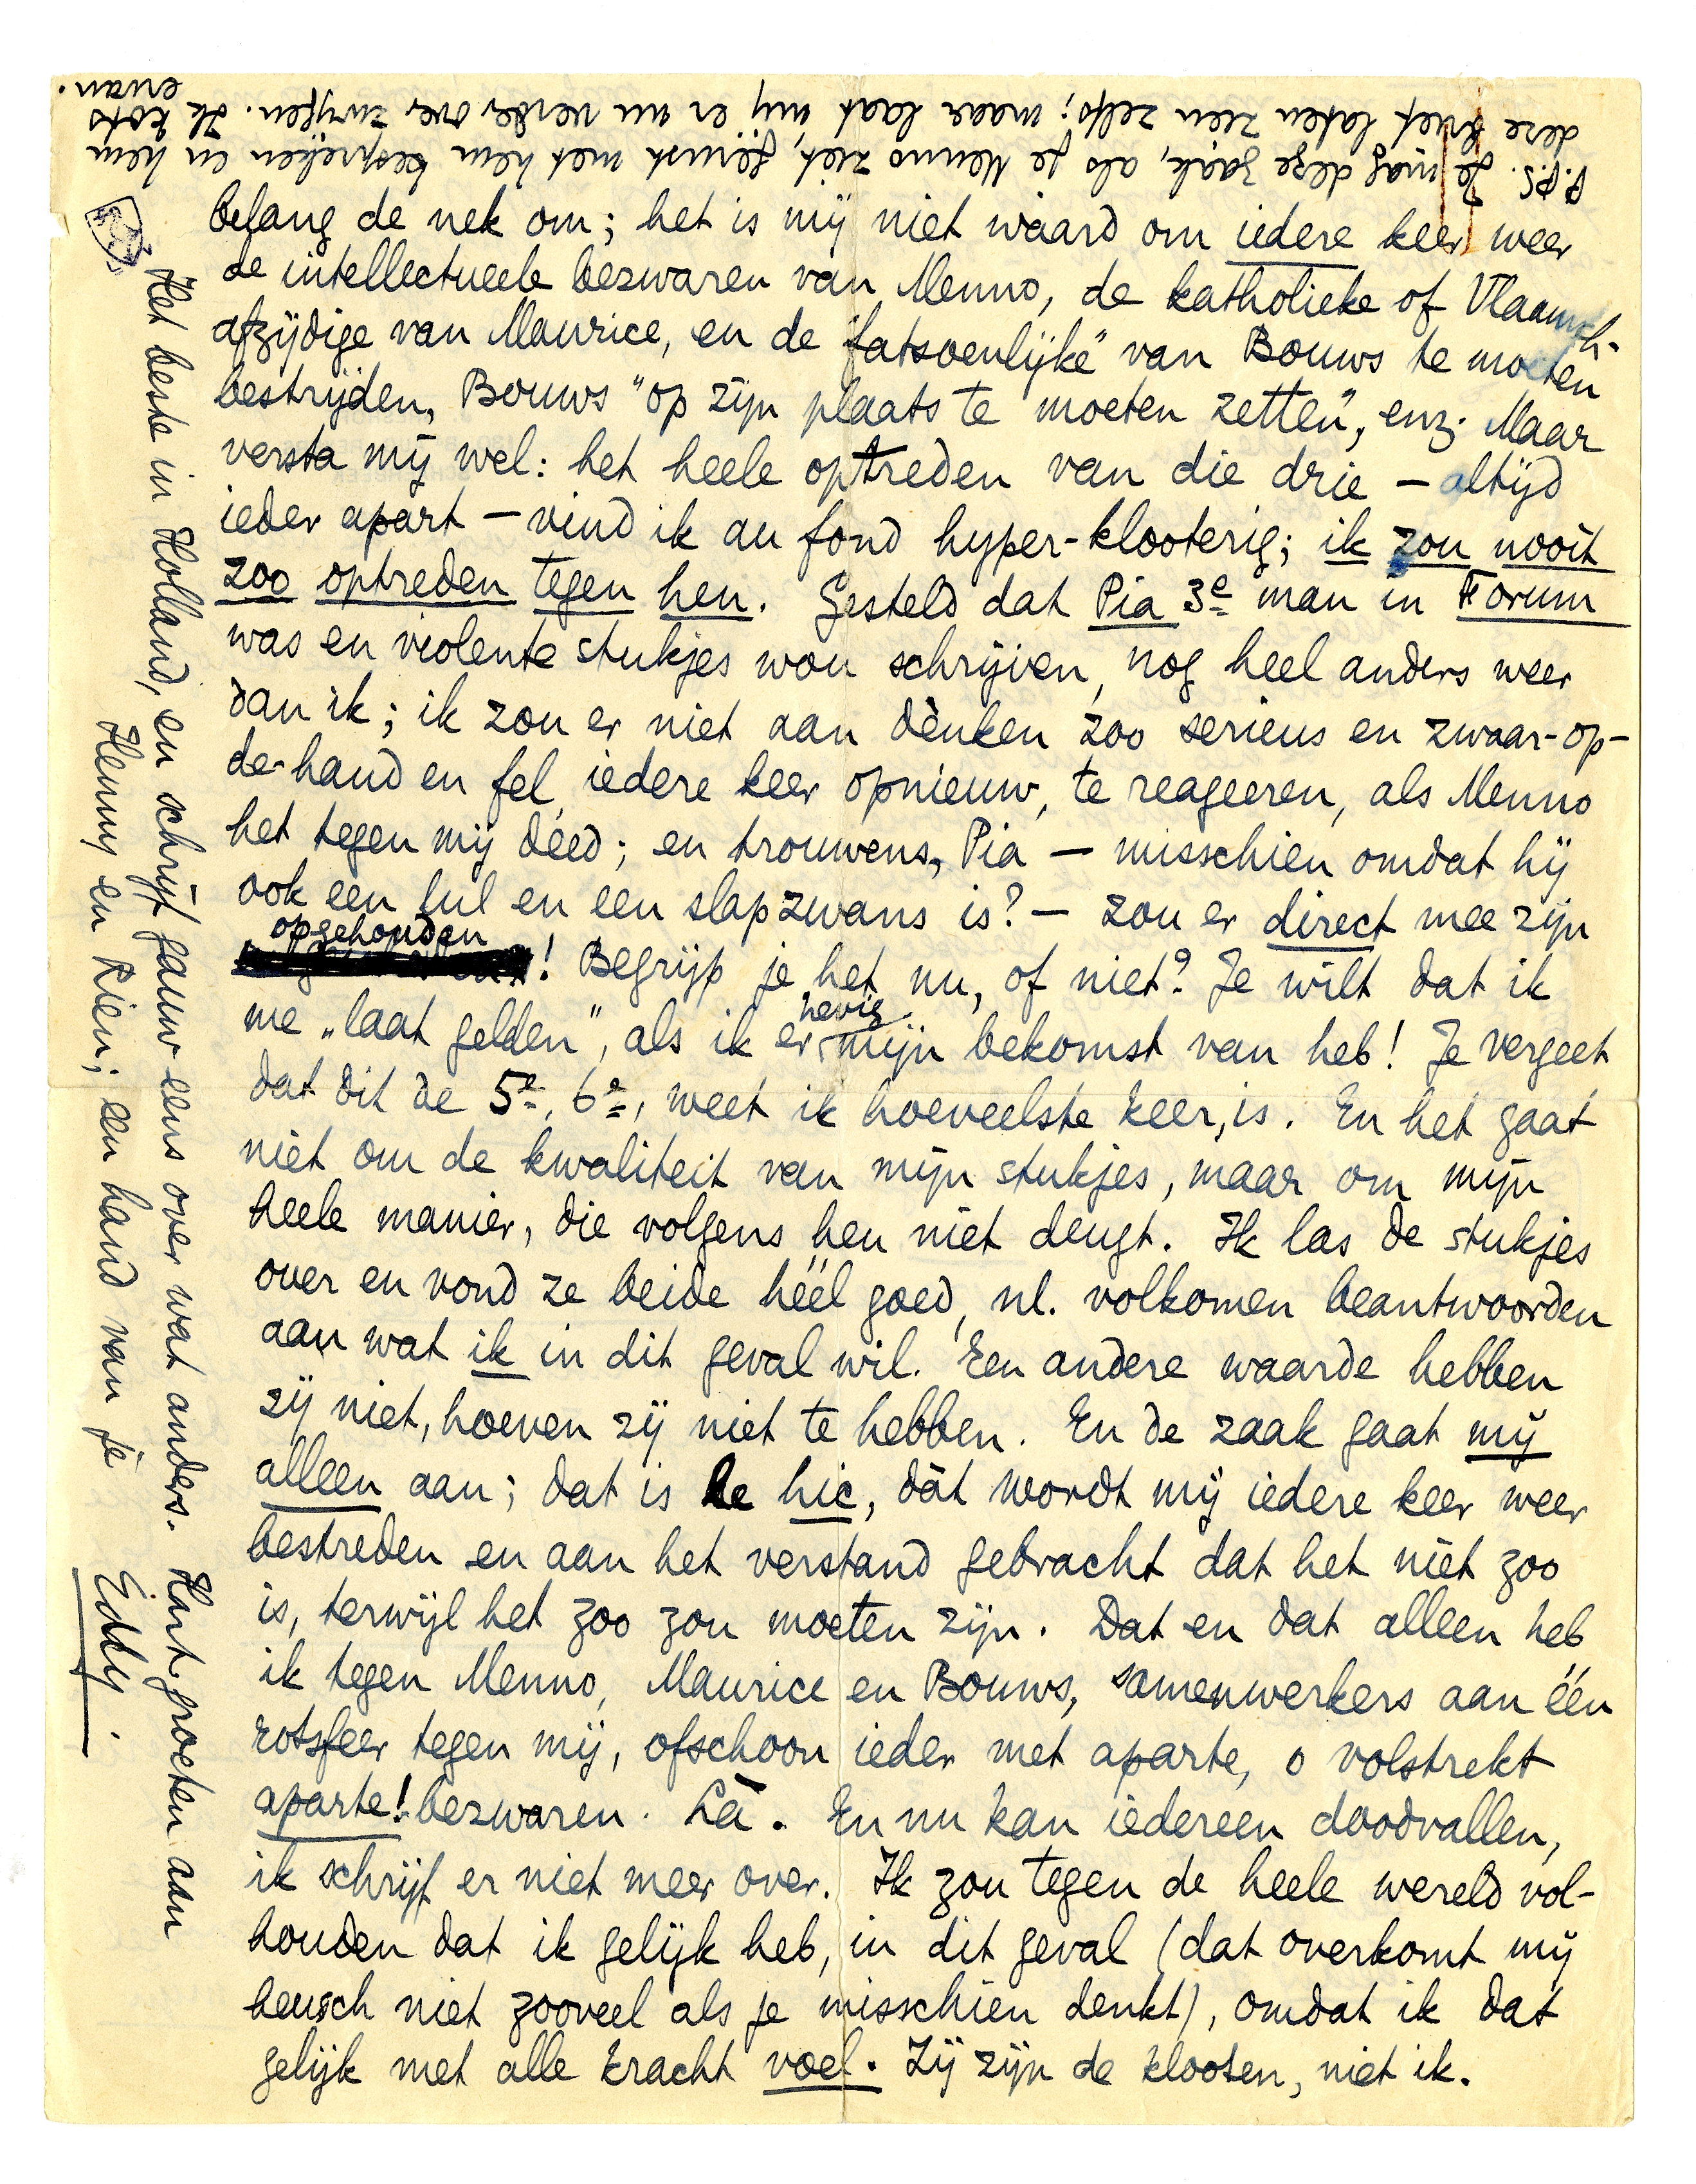 belang de nek om; het is mij niet waard om iedere keer weer
de intellectueele bezwaren van Menno, de katholieke of Vlaamsch-
afzijdige van Maurice, en de "fatsoenlijke" van Bouws te moeten
bestrijden, Bouws "op zijn plaats te moeten zetten", enz. Maar
versta mij wel: het heele optreden van die drie – altijd
ieder apart – vind ik au fond hyper-klooterig; ik zou nooit
zoo optreden tegen hen. Gesteld dat Pia 3e man in Forum
was en violente stukjes wou schrijven, nog heel anders weer
dan ik; ik zou er niet aan dènken zoo serieus en zwaar-op-
de-hand en fel, iedere keer opnieuw, te reageeren, als Menno
het tegen mij deed; en trouwens, Pia – misschien omdat hij
ook een lul en een slapzwans is? – zou er direct mee zijn
opgehouden! Begrijp je het nu, of niet? Je wilt dat ik
me „laat gelden", als ik er hevig mijn bekomst van heb! Je vergeet
dat dit de 5e, 6e, weet ik hoeveelste keer, is. En het gaat
niet om de kwaliteit van mijn stukjes, maar om mijn
heele manier, die volgens hen niet deugt. Ik las de stukjes
over en vond ze beide héél goed, nl. volkomen beantwoorden
aan wat ik in dit geval wil. Een andere waarde hebben
zij niet, hoeven zij niet te hebben. En de zaak gaat mij
alleen aan; dat is le hic, dàt wordt mij iedere keer weer
bestreden en aan het verstand gebracht dat het niet zoo
is, terwijl het zoo zou moeten zijn. Dat en dat alleen heb
ik tegen Menno, Maurice en Bouws, samenwerkers aan één
rotsfeer tegen mij, ofschoon ieder met aparte, o volstrekt
aparte! bezwaren. Là. En nu kan iedereen doodvallen,
ik schrijf er niet meer over. Ik zou tegen de heele wereld vol-
houden dat ik gelijk heb, in dit geval (dat overkomt mij
heusch niet zooveel als je misschien denkt), omdat ik dat
gelijk met alle kracht voel. Zij zijn de klooten, niet ik.
Het beste in Holland, en schrijf gauw eens over wat anders. Hart. groeten aan
Henny en Rien; een hand van je
Eddy.
P.S. Je mag deze zaak, als je Menno ziet, gerust met hem bespreken en hem
deze brief laten zien zelfs; maar laat mij er nu verder over zwijgen. Ik kots
ervan.